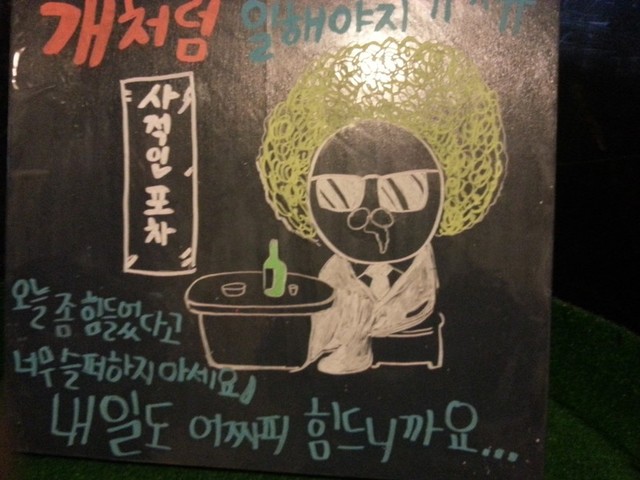 개처럼 일해야지
사적인 포차
오늘 좀 힘들었다고
너무 슬퍼하지 마세요,
내일도 어짜피 힘드니까요...